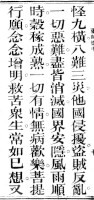 怪九橫八難三災他國侵擾盜賊反亂
一切惡難盡皆消滅國界安隱風雨順
時穀稼成熟一切有情無病歡樂菩提
行願念念增明救苦眾生常如已想又